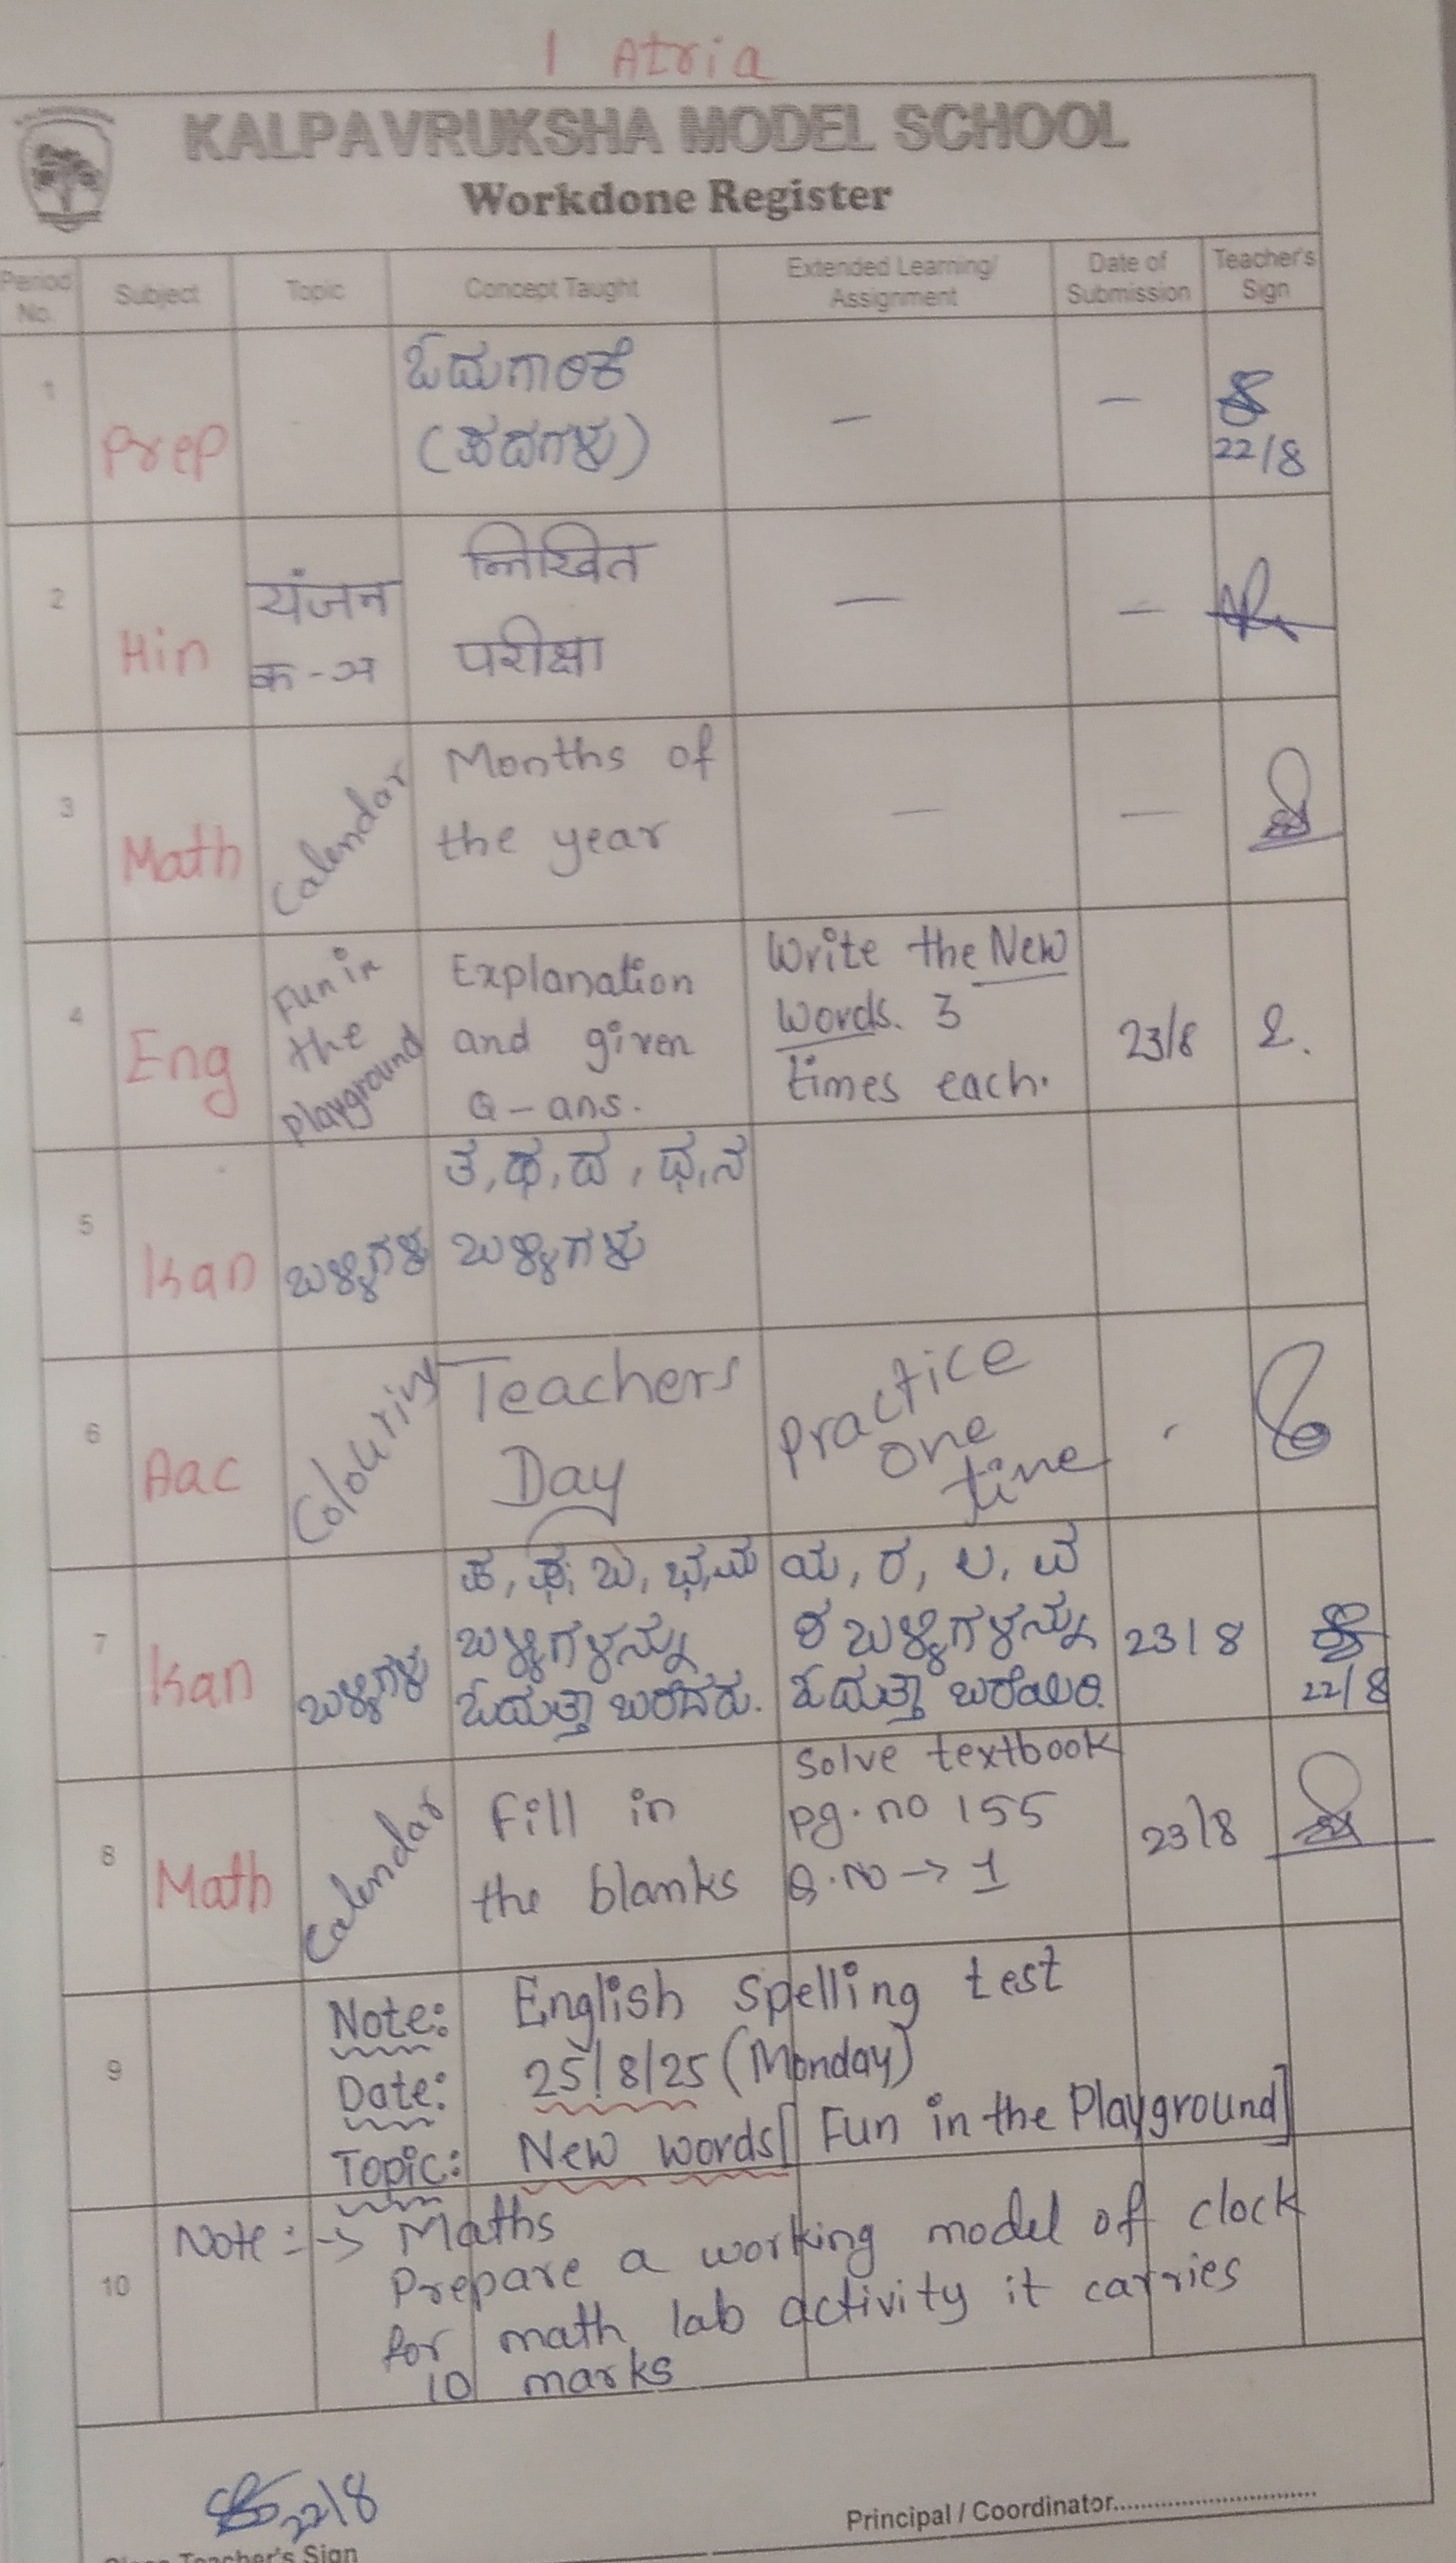 1 Atria
KALPAVRUKSHA MODEL SCHOOL
Workdone Register
Period No. Subject Topic Concept Taught Extended Learning/ Assignment Date of Submission Teacher's Sign
1 Prep ಓದುಗಾರಿಕೆ — —
(ಪದಗಳು) 22/8
2 Hin यंजन लिखित — —
क-ञ परीक्षा
3 Math Calendar Months of — —
the year
4 Eng Fun in Explanation Write the New
the and given words. 3 23/8
playground Q-ans. times each.
5 Kan ತ, ಥ, ದ, ಧ, ನ
ಬಳ್ಳಿಗಳು ಬಳ್ಳಿಗಳು
6 Aac Colouring Teachers Practice
Day one
time
7 Kan ಪ, ಫ, ಬ, ಭ, ಮ ಯ, ರ, ಲ, ವ
ಬಳ್ಳಿಗಳು ಬಳ್ಳಿಗಳನ್ನು ಶ ಬಳ್ಳಿಗಳನ್ನು 23/8
ಓದುತ್ತಾ ಬರೆದರು. ಓದುತ್ತಾ ಬರೆಯಿರಿ. 22/8
8 Math Calendar Fill in Solve textbook
the blanks pg.no 155 23/8
Q.no → 1
9 Note: English Spelling test
Date: 25/8/25 (Monday)
Topic: New words [Fun in the Playground]
10 Note :-> Maths
Prepare a working model of clock
for math lab activity it carries
10 marks
22/8
Principal / Coordinator
Class Teacher's Sign